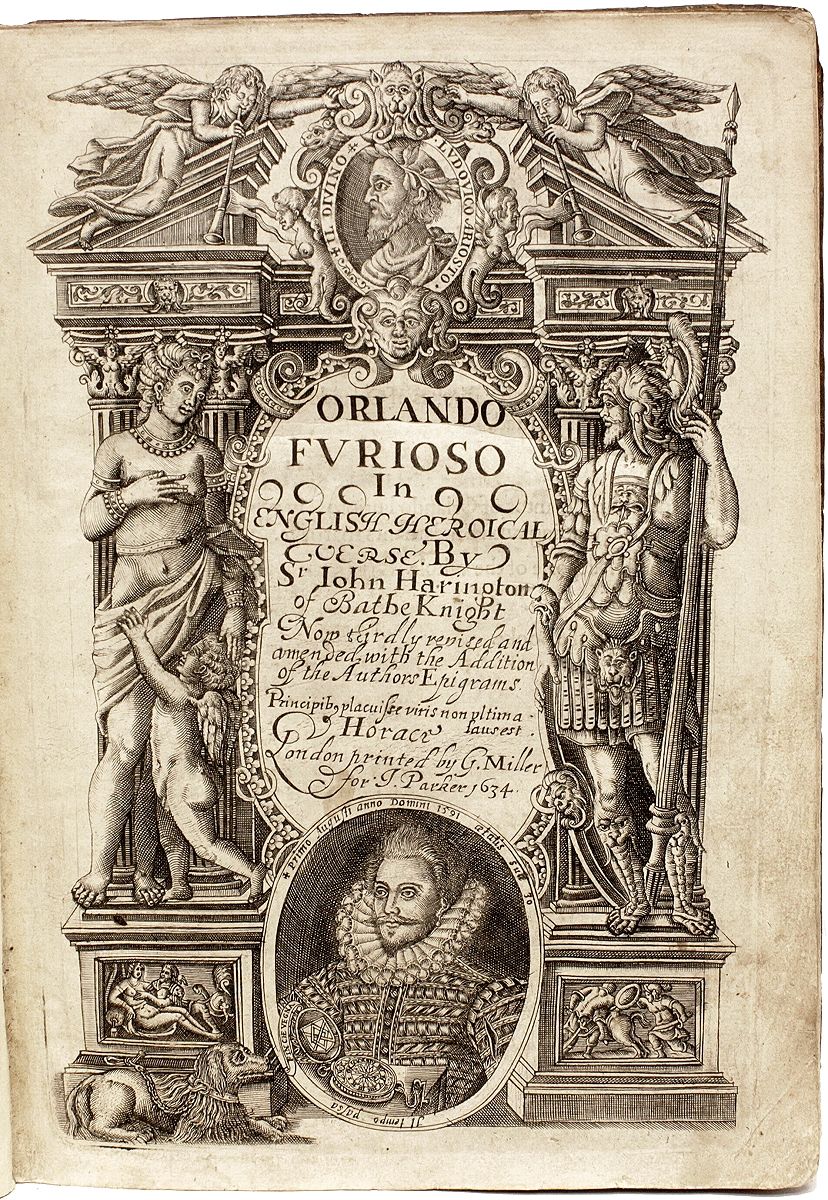 IL DIVINO · LVDOVICO · ARIOSTO ·
ORLANDO
FVRIOSO
In
ENGLISH HEROICAL
VERSE. By
Sr. Iohn Harington
of Bathe Knight
Now thirdly revised and
amended with the Addition
of the Authors Epigrams.
Principibꝯ placuiſſe viris non vltima
laus est
Horace
London printed by G. Miller
for J. Parker 1634.
+ primo Augusti anno Domini 1591 ætatis suæ 30
Il tempo passa